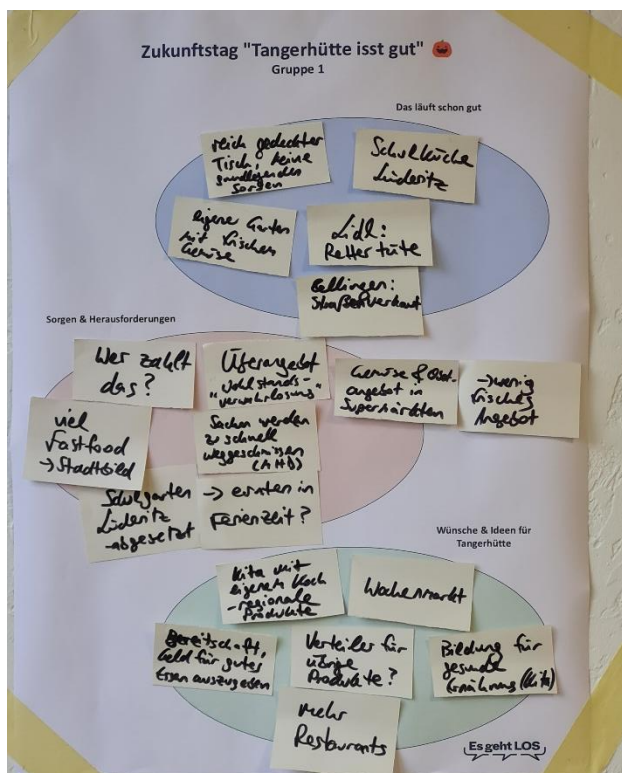 Zukunftstag "Tangerhütte isst gut"
Gruppe 1
Das läuft schon gut
reich gedeckter
Tisch, keine
grundlegenden
Sorgen
Schulküche
Lüderitz
eigene Garten
mit frischem
Gemüse
Lidl:
Rettertüte
Bellingen:
Straßenverkauf
Sorgen & Herausforderungen
Wer zahlt
das?
Überangebot
"Wohlstands-
verwahrlosung"
Gemüse & Obst-
angebot in
Supermärkten
→ wenig
frisches
Angebot
viel
Fastfood
→ Stadtbild
Sachen werden
zu schnell
weggeschmissen
(MHD)
Schulgarten
Lüderitz
- abgesetzt
→ ernten in
Ferienzeit?
Wünsche & Ideen für
Tangerhütte
Kita mit
eigenem Koch
- regionale
Produkte
Wochenmarkt
Bereitschaft,
Geld für gutes
Essen auszugeben
Verteiler für
übrige
Produkte?
Bildung für
gesunde
Ernährung (Kita)
mehr
Restaurants
Es geht LOS